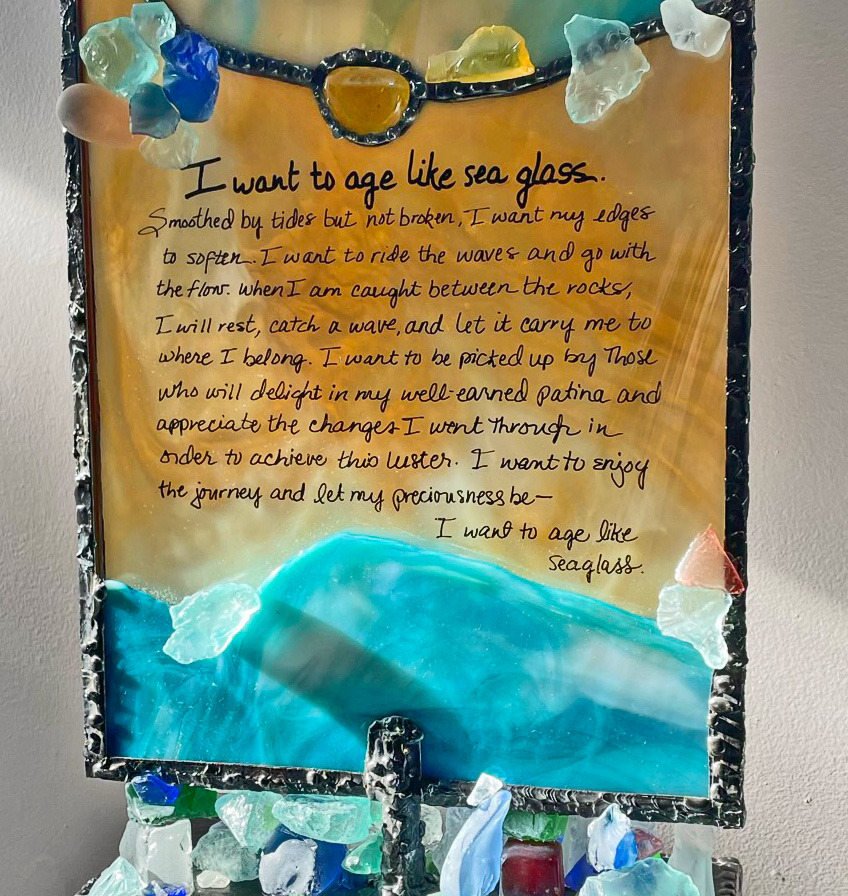 I want to age like sea glass.
Smoothed by tides but not broken, I want my edges
to soften. I want to ride the waves and go with
the flow. when I am caught between the rocks,
I will rest, catch a wave, and let it carry me to
where I belong. I want to be picked up by Those
who will delight in my well-earned patina and
appreciate the changes I went through in
order to achieve this luster. I want to enjoy
the journey and let my preciousness be—
I want to age like
seaglass.